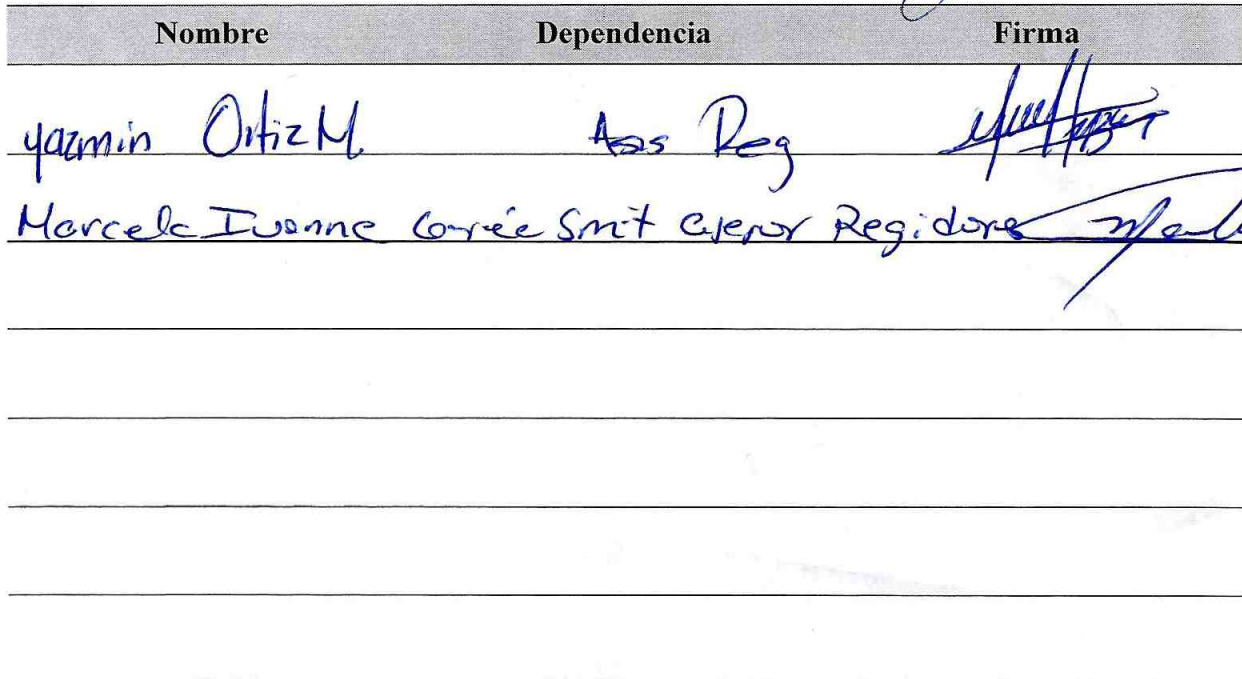 Nombre Dependencia Firma
Yazmin Ortiz M. Ases Reg
Marcela Ivonne Smit Asesor Regidora